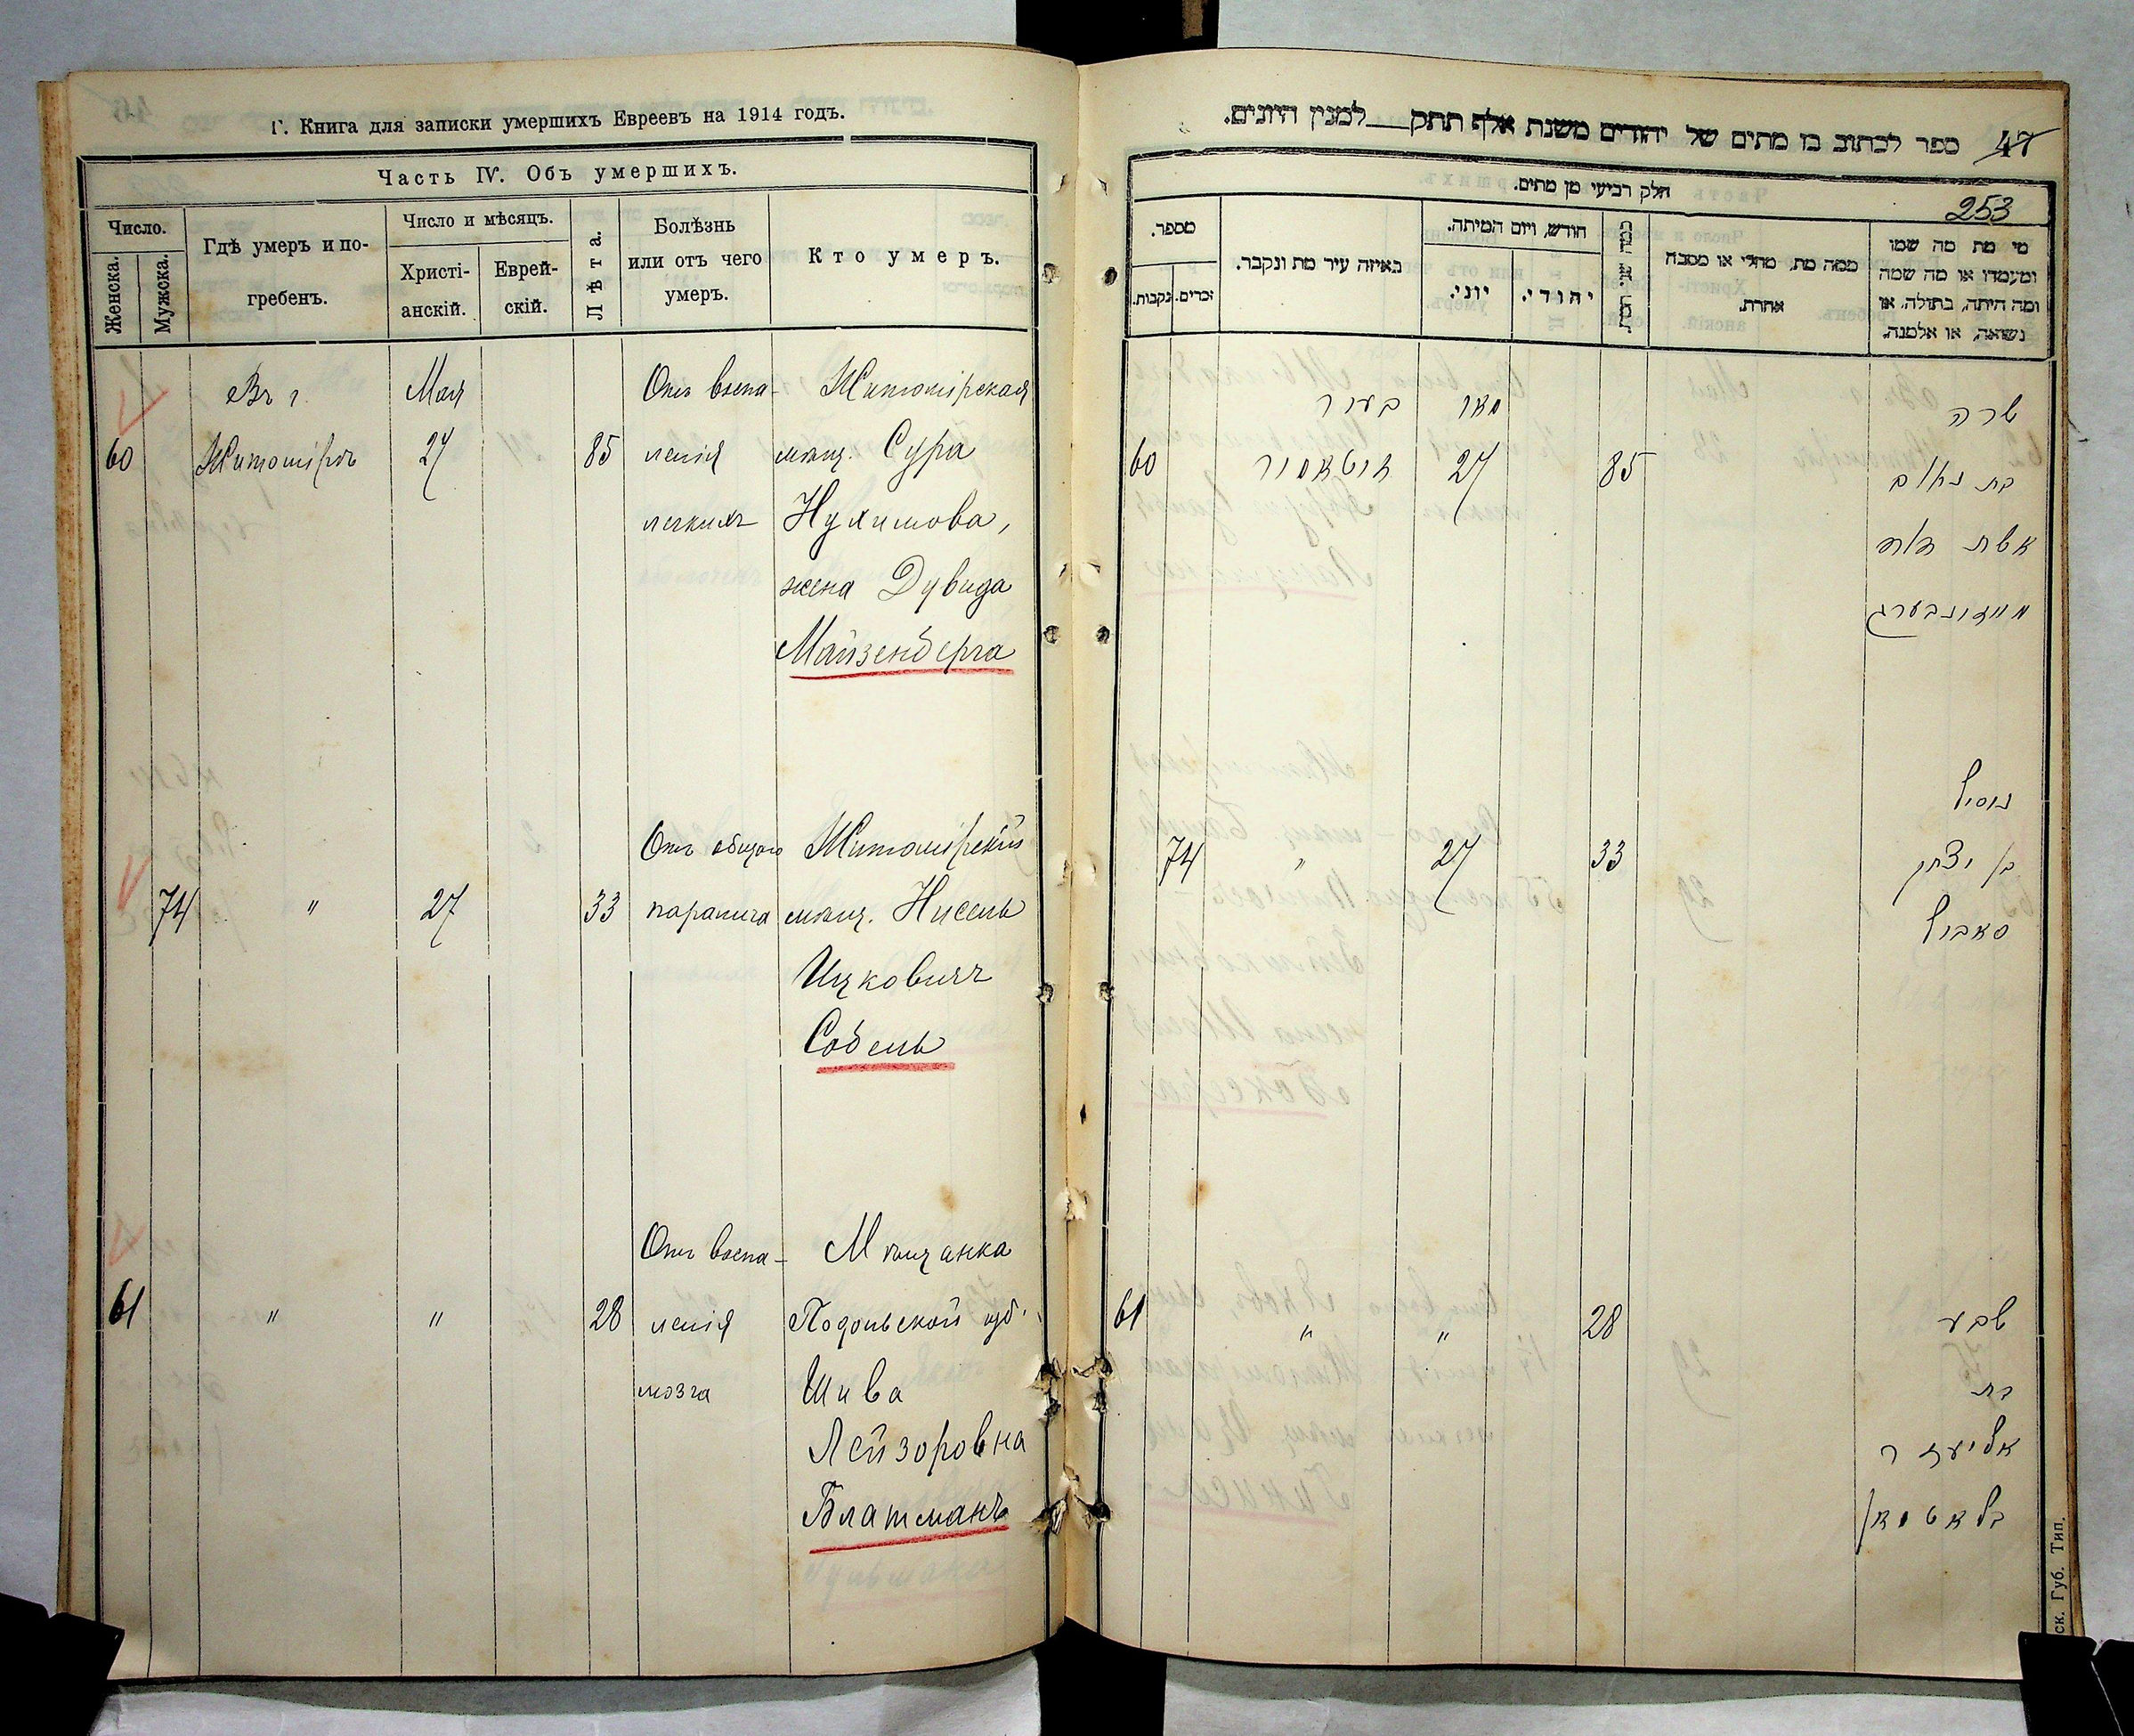 Г. Книга для записки умершихъ Евреевъ на 1914 годъ.
Часть IV. Объ умершихъ.
Число.
Женска.
Мужска.
Гдѣ умеръ и по-
гребенъ.
Число и мѣсяцъ.
Христі-
анскій.
Еврей-
скій.
Лѣта.
Болѣзнь
или отъ чего
умеръ.
Кто умеръ.
Въ г. Мая Отъ воспа- Житомірская
60 Житомірѣ 27 85 ленія мѣщ. Сура
легкихъ Нухимова,
жена Дувида
Майзенберга
Отъ общаго Житомірскій
74 " 27 33 паралича мѣщ. Нисель
Ицковичъ
Собель
Отъ воспа- Мѣщанка
61 " " 28 ленія Подольской губ.
мозга Шива
Лейзоровна
Блатманъ
47 ספר לכתוב בו מתים של יהודים משנת אלף תתק למנין היונים.
חלק רביעי מן מתים.
253
מספר.
נקבות.
זכרים.
באיזה עיר מת ונקבר.
חודש, ויום המיתה.
יוני.
יהודי.
ממה מת, מחלי או מסבה
אחרת.
מי מת מה שמו
ומעמדו או מה שמה
ומה היתה, בתולה, או
נשואה, או אלמנה.
בעיר מאי שרה
60 זיטאמיר 27 85 בת נחום
אשת דוד
מייזענבערג
ניסיל
74 " 27 33 בן יצחק
סאביל
61 " " 28 שבע
בת
אליעזר
בלאטמאן
ск. Губ. Тип.